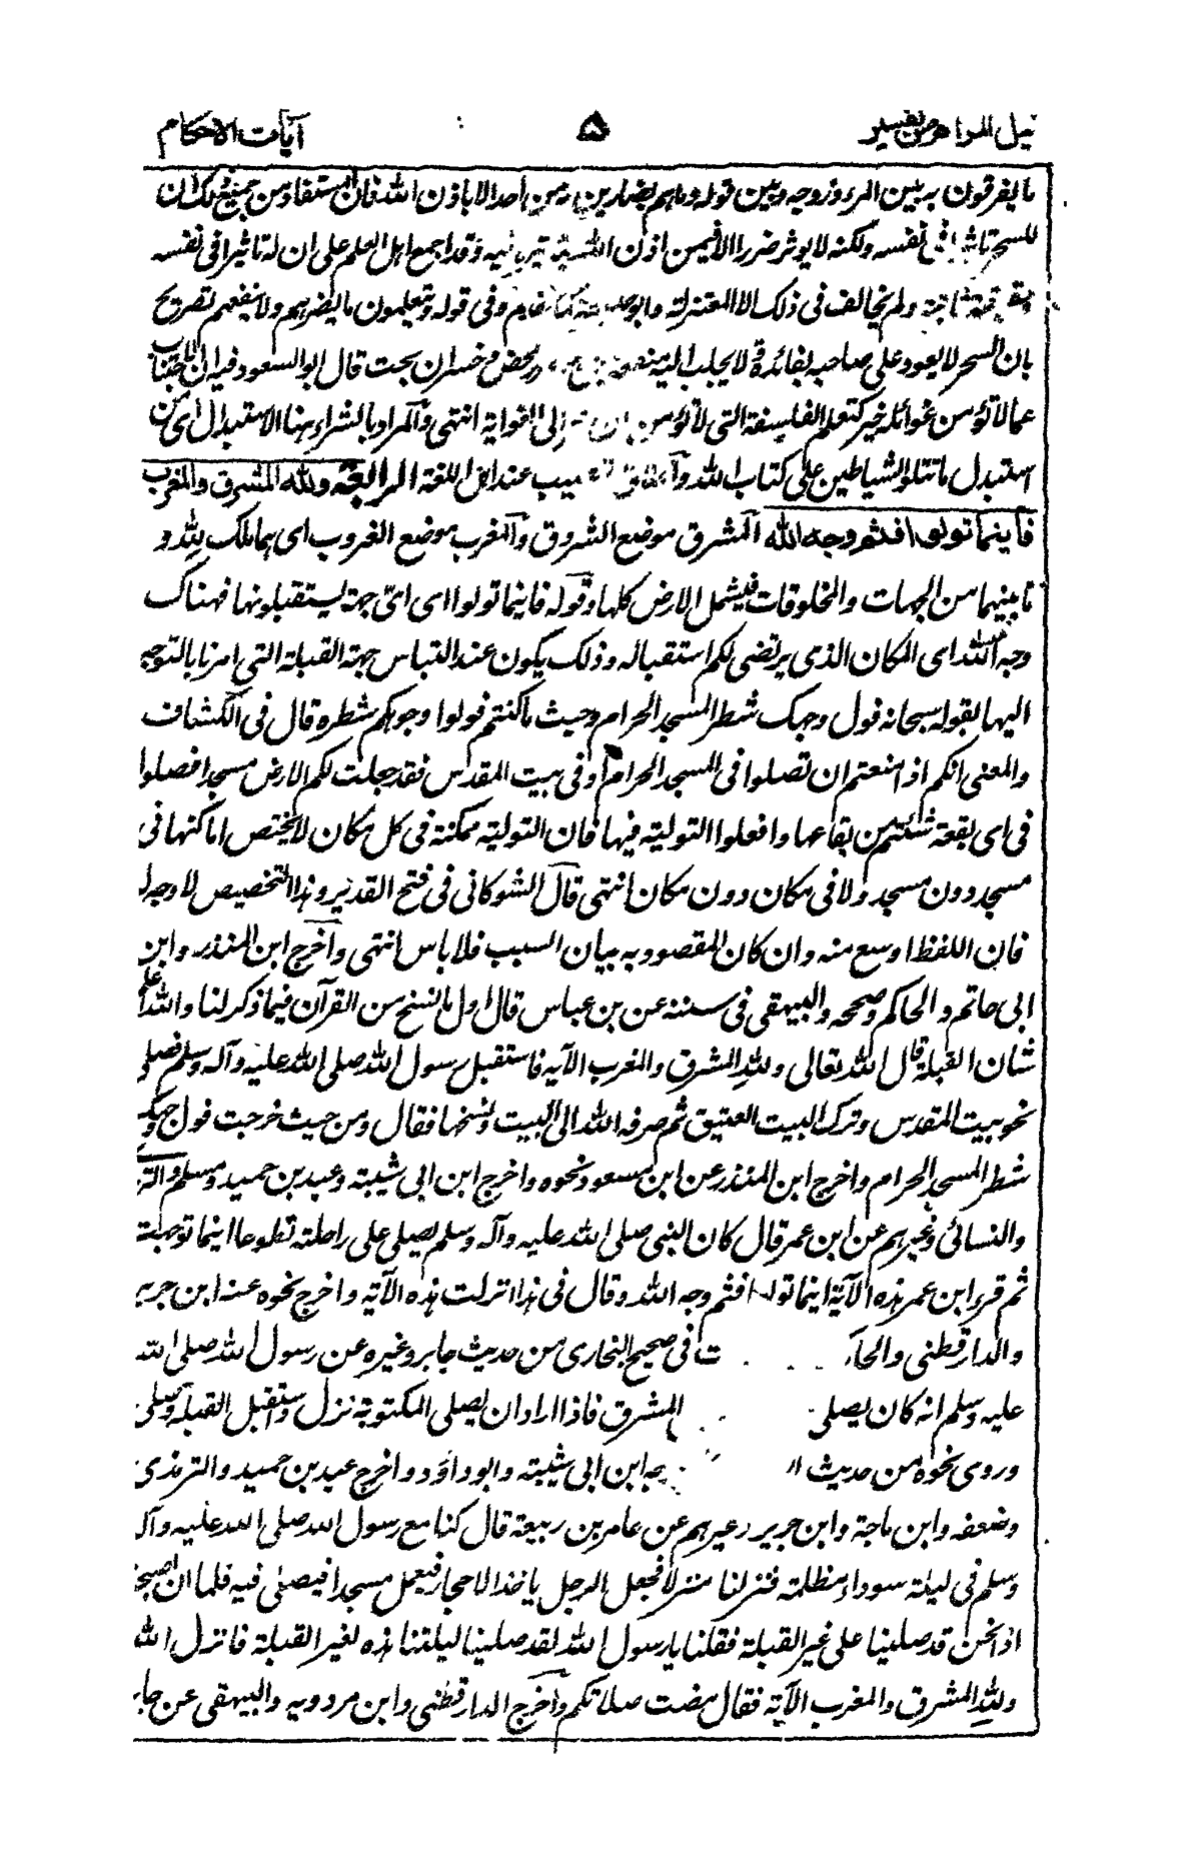 نيل المرام من تفسير ۵ آيات الاحكام
ما يفرقون به بين المرء وزوجه وبين قوله وما هم بضارين به من أحد الا باذن الله فان المستفاد من جميع ذلك ان
للسحر تاثيرا فى نفسه ولكنه لا يوثر ضررا الا فيمن اذن الله بتاثيره فيه وقد اجمع اهل العلم على ان له تاثيرا فى نفسه
وحقيقة ثابتة ولم يخالف فى ذلك الا المعتزلة وابو حنيفة كما تقدم وفى قوله ويتعلمون ما يضرهم ولا ينفعهم تصريح
بان السحر لا يعود على صاحبه بفائدة ولا يجلب اليه منفعة بل هو ضرر محض وخسران بحت قال ابو السعود فيه ان الاجتناب
عما لا تؤمن غوائله خير كتعلم الفلسفة التى لا تؤمن ان تجر الى الغواية انتهى والمراد بالشراء هنا الاستبدال اى من
استبدل ما تتلو الشياطين على كتاب الله و عند اهل اللغة الرابعة ولله المشرق والمغرب
فاينما تولوا فثم وجه الله المشرق موضع الشروق والمغرب موضع الغروب اى هما ملك لله و
ما بينهما من الجهات والمخلوقات فيشمل الارض كلها وقوله فاينما تولوا اى اى جهة تستقبلونها فهناك
وجه الله اى المكان الذى يرتضى لكم استقباله وذلك يكون عند التباس جهة القبلة التى امرنا بالتوجه
اليها بقوله سبحانه فول وجهك شطر المسجد الحرام وحيث ما كنتم فولوا وجوهكم شطره قال فى الكشاف
والمعنى انكم اذا منعتم ان تصلوا فى المسجد الحرام او فى بيت المقدس فقد جعلت لكم الارض مسجدا فصلوا
فى اى بقعة شئتم من بقاعها وافعلوا التولية فيها فان التولية ممكنة فى كل مكان لا يختص اماكنها فى
مسجد دون مسجد ولا فى مكان دون مكان انتهى قال الشوكانى فى فتح القدير وهذا التخصيص لا وجه له
فان اللفظ اوسع منه وان كان المقصود به بيان السبب فلا باس انتهى واخرج ابن المنذر وابن
ابى حاتم والحاكم وصححه والبيهقى فى سننه عن بن عباس قال اول ما نسخ من القرآن فيما ذكر لنا والله اعلم
شان القبلة قال الله تعالى ولله المشرق والمغرب الآية فاستقبل رسول الله صلى الله عليه وآله وسلم فصلى
نحو بيت المقدس وترك البيت العتيق ثم صرفه الله الى البيت ونسخها فقال ومن حيث خرجت فول وجهك
شطر المسجد الحرام واخرج ابن المنذر عن ابن مسعود نحوه واخرج ابن ابى شيبة وعبد بن حميد ومسلم والتر
والنسائى وغيرهم عن ابن عمر قال كان النبى صلى الله عليه وآله وسلم يصلى على راحلته تطوعا اينما توجهت
ثم قرء ابن عمر هذه الآية اينما تولوا فثم وجه الله وقال فى هذا انزلت هذه الآية واخرج نحوه عنه ابن جرير
والدارقطنى والحا ت فى صحيح البخارى من حديث جابر وغيره عن رسول الله صلى الله
عليه وسلم انه كان يصلى المشرق فاذا اراد ان يصلى المكتوبة نزل واستقبل القبلة وصلى
وروى نحوه من حديث ا جه ابن ابى شيبة وابو داؤد واخرج عبد بن حميد والترمذى
وضعفه وابن ماجة وابن جرير وغيرهم عن عامر بن ربيعة قال كنا مع رسول الله صلى الله عليه وآله
وسلم فى ليلة سوداء مظلمة فنزلنا منزلا فجعل الرجل ياخذ الاحجار فيعمل مسجدا فيصلى فيه فلما ان اصبحنا
اذا نحن قد صلينا على غير القبلة فقلنا يا رسول الله لقد صلينا ليلتنا هذه لغير القبلة فانزل الله
ولله المشرق والمغرب الآية فقال مضت صلاتكم واخرج الدارقطنى وابن مردويه والبيهقى عن جابر